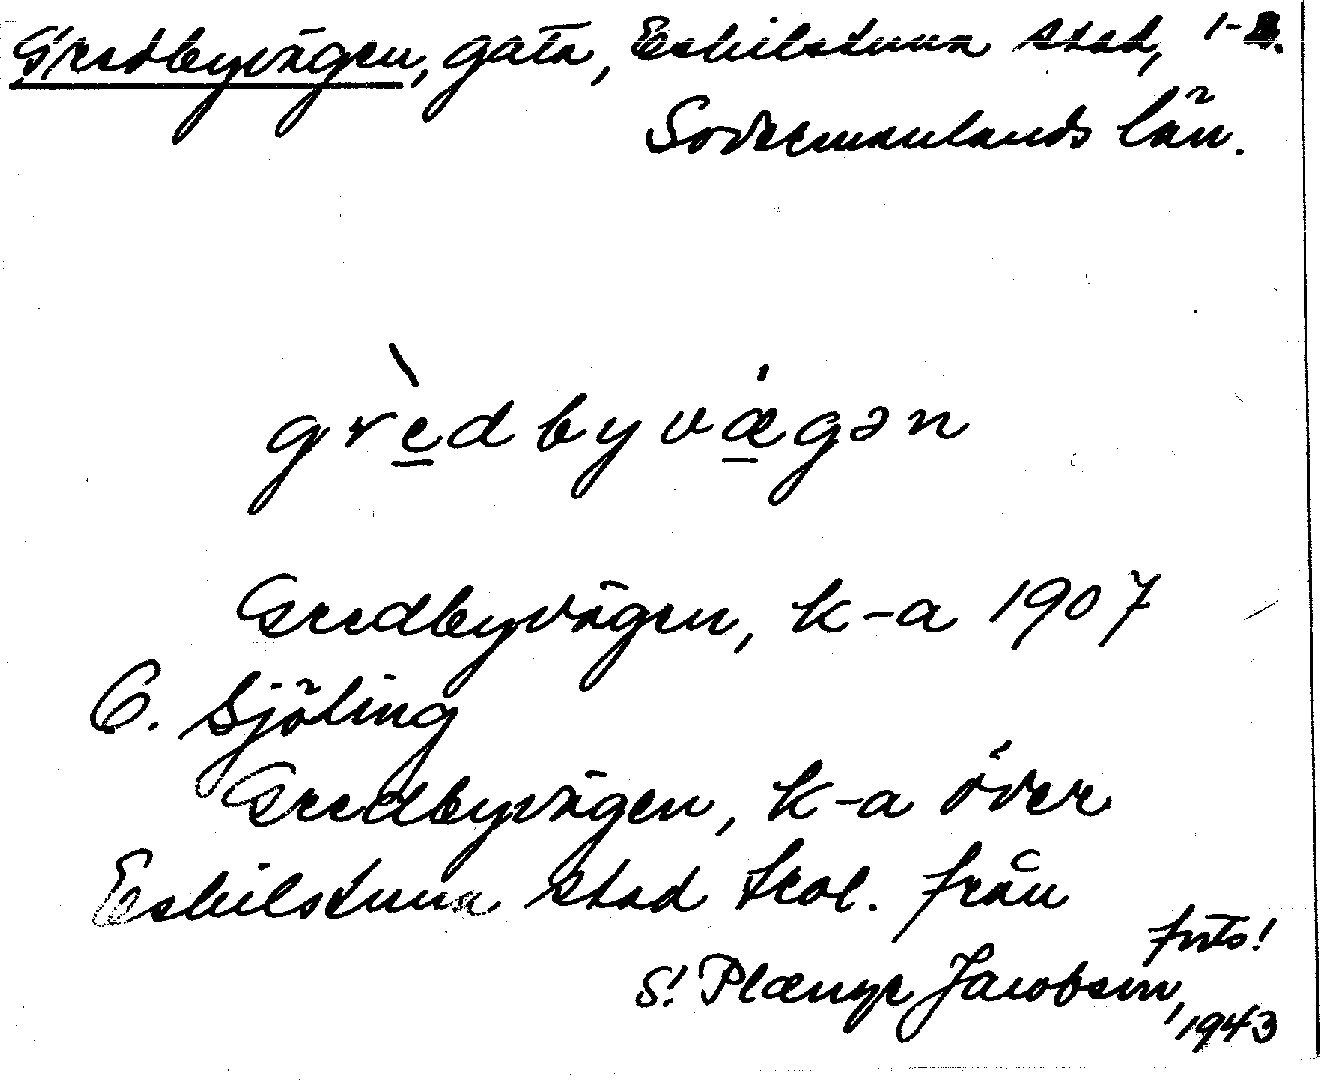 Gredbyvägen, gata, Eskilstuna stad, 1-2.
Södermanlands län.
grèdbyvägən
Gredbyvägen, k-a 1907
C. Sjöling
Gredbyvägen, k-a över
Eskilstuna stad trol. från
foto!
S. Plænge Jacobson,
1943